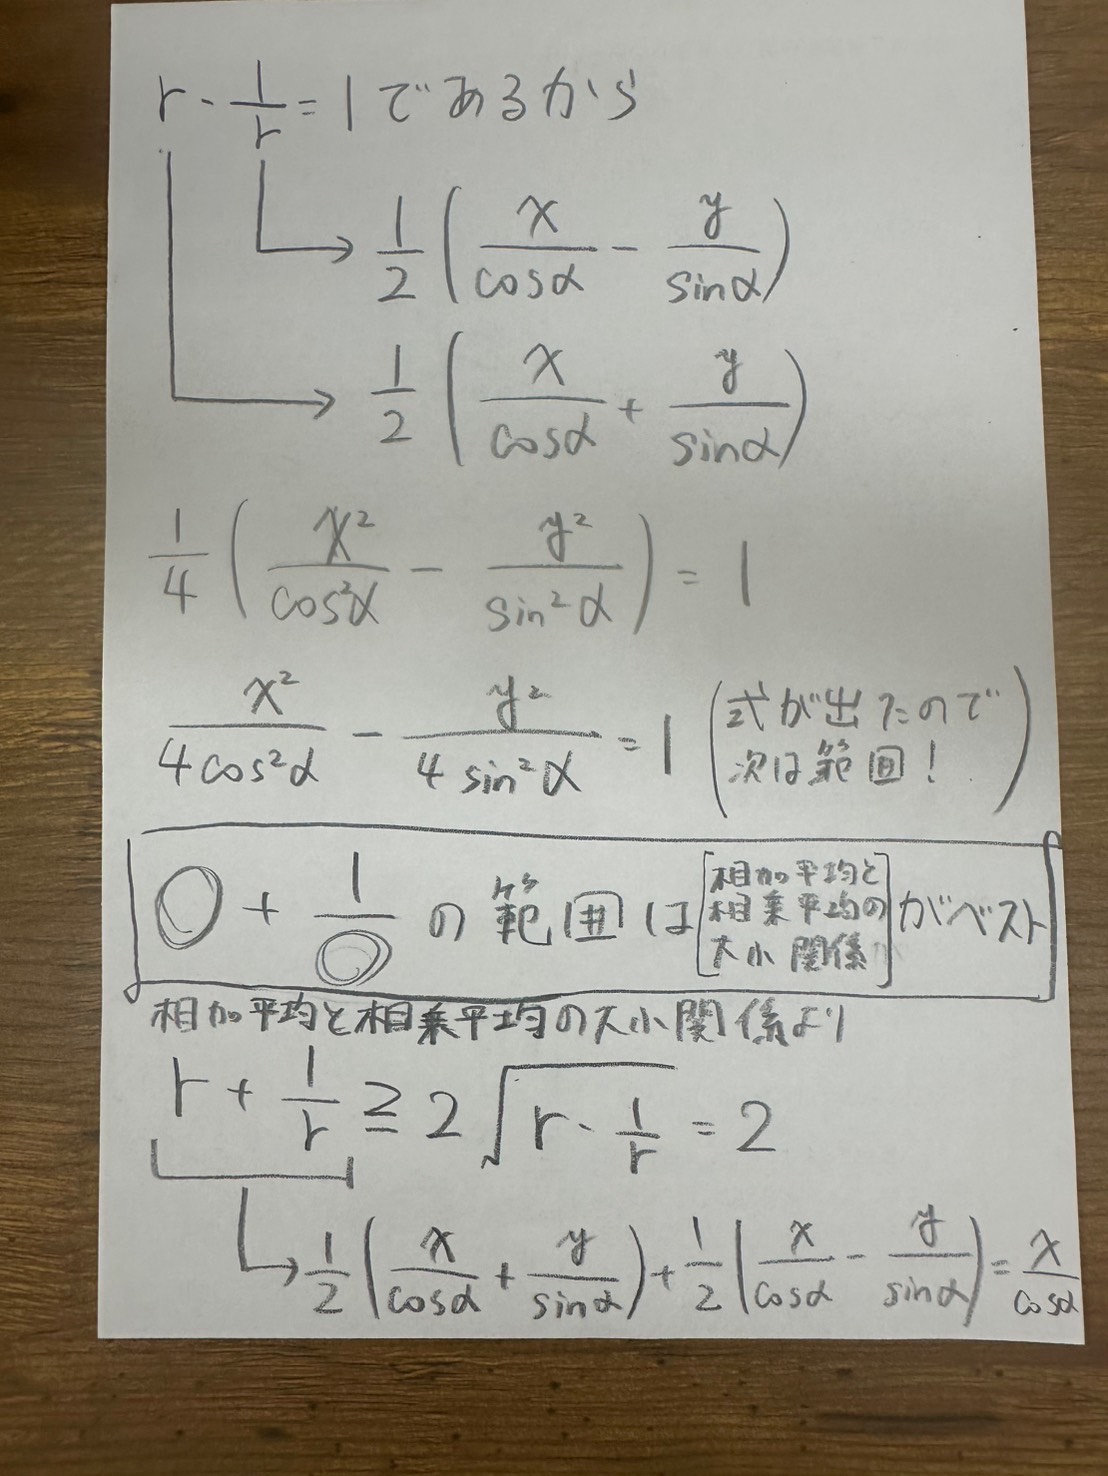 r・1/r=1であるから
1/2(x/cosα - y/sinα)
1/2(x/cosα + y/sinα)
1/4(x²/cos²α - y²/sin²α)=1
x²/4cos²α - y²/4sin²α=1(式が出たので次は範囲!)
○+1/○の範囲は[相加平均と相乗平均の大小関係]がベスト
相加平均と相乗平均の大小関係より
r+1/r≧2√(r・1/r)=2
1/2(x/cosα+y/sinα)+1/2(x/cosα-y/sinα)=x/cosα